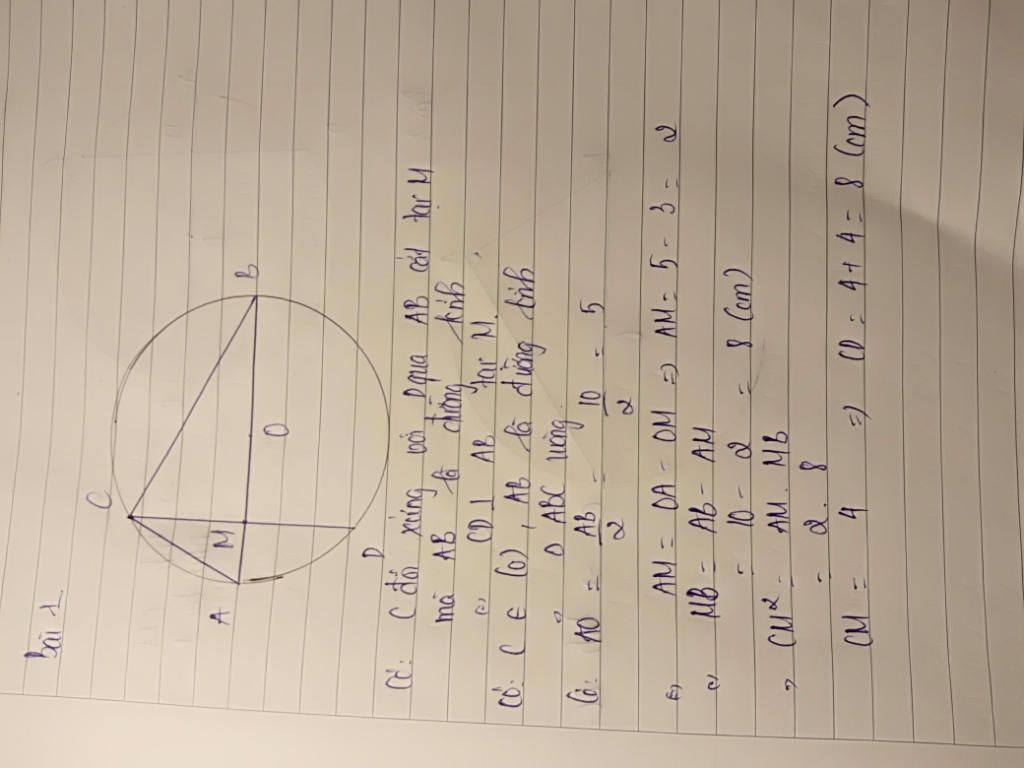 Bài 1
C
A
M
O
B
D
Có: C đối xứng với D qua AB cắt tại M
mà AB là đường kính
=> CD ⊥ AB tại M.
Có: C ∈ (O), AB là đường kính
=> Δ ABC vuông
Có: AO = AB/2 = 10/2 = 5
=> AM = OA - OM => AM = 5 - 3 = 2
=> MB = AB - AM
= 10 - 2 = 8 (cm)
=> CM² = AM . MB
= 2 . 8
CM = 4 => CD = 4 + 4 = 8 (cm)